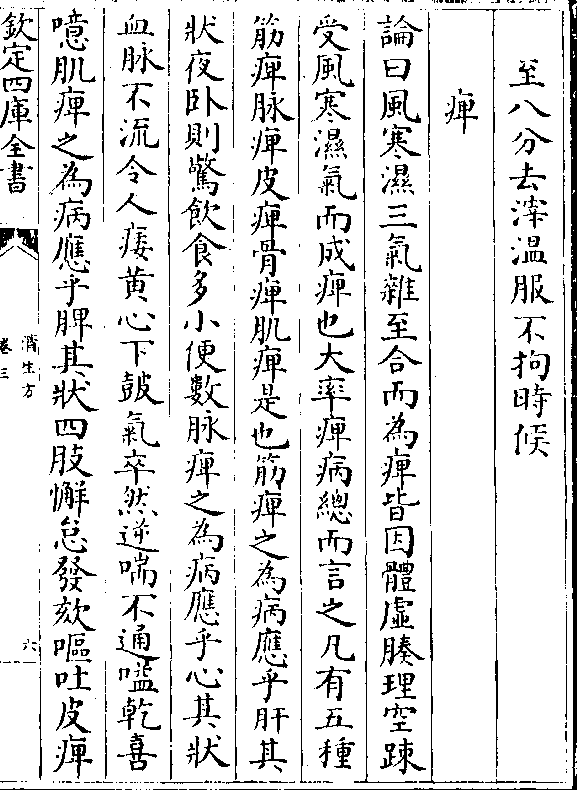 至八分去滓溫服不拘時候
痺
論曰風寒濕三氣雜至合而為痺皆因體虛腠理空踈
受風寒濕氣而成痺也大率痺病總而言之凡有五種
筋痺脉痺皮痺骨痺肌痺是也筋痺之為病應乎肝其
狀夜卧則驚飲食多小便數脉痺之為病應乎心其狀
血脉不流令人痿黄心下皷氣卒然逆喘不通嗌乾喜
噫肌痺之為病應乎脾其狀四肢懈怠發欬嘔吐皮痺
欽定四庫全書
濟生方
卷三
六